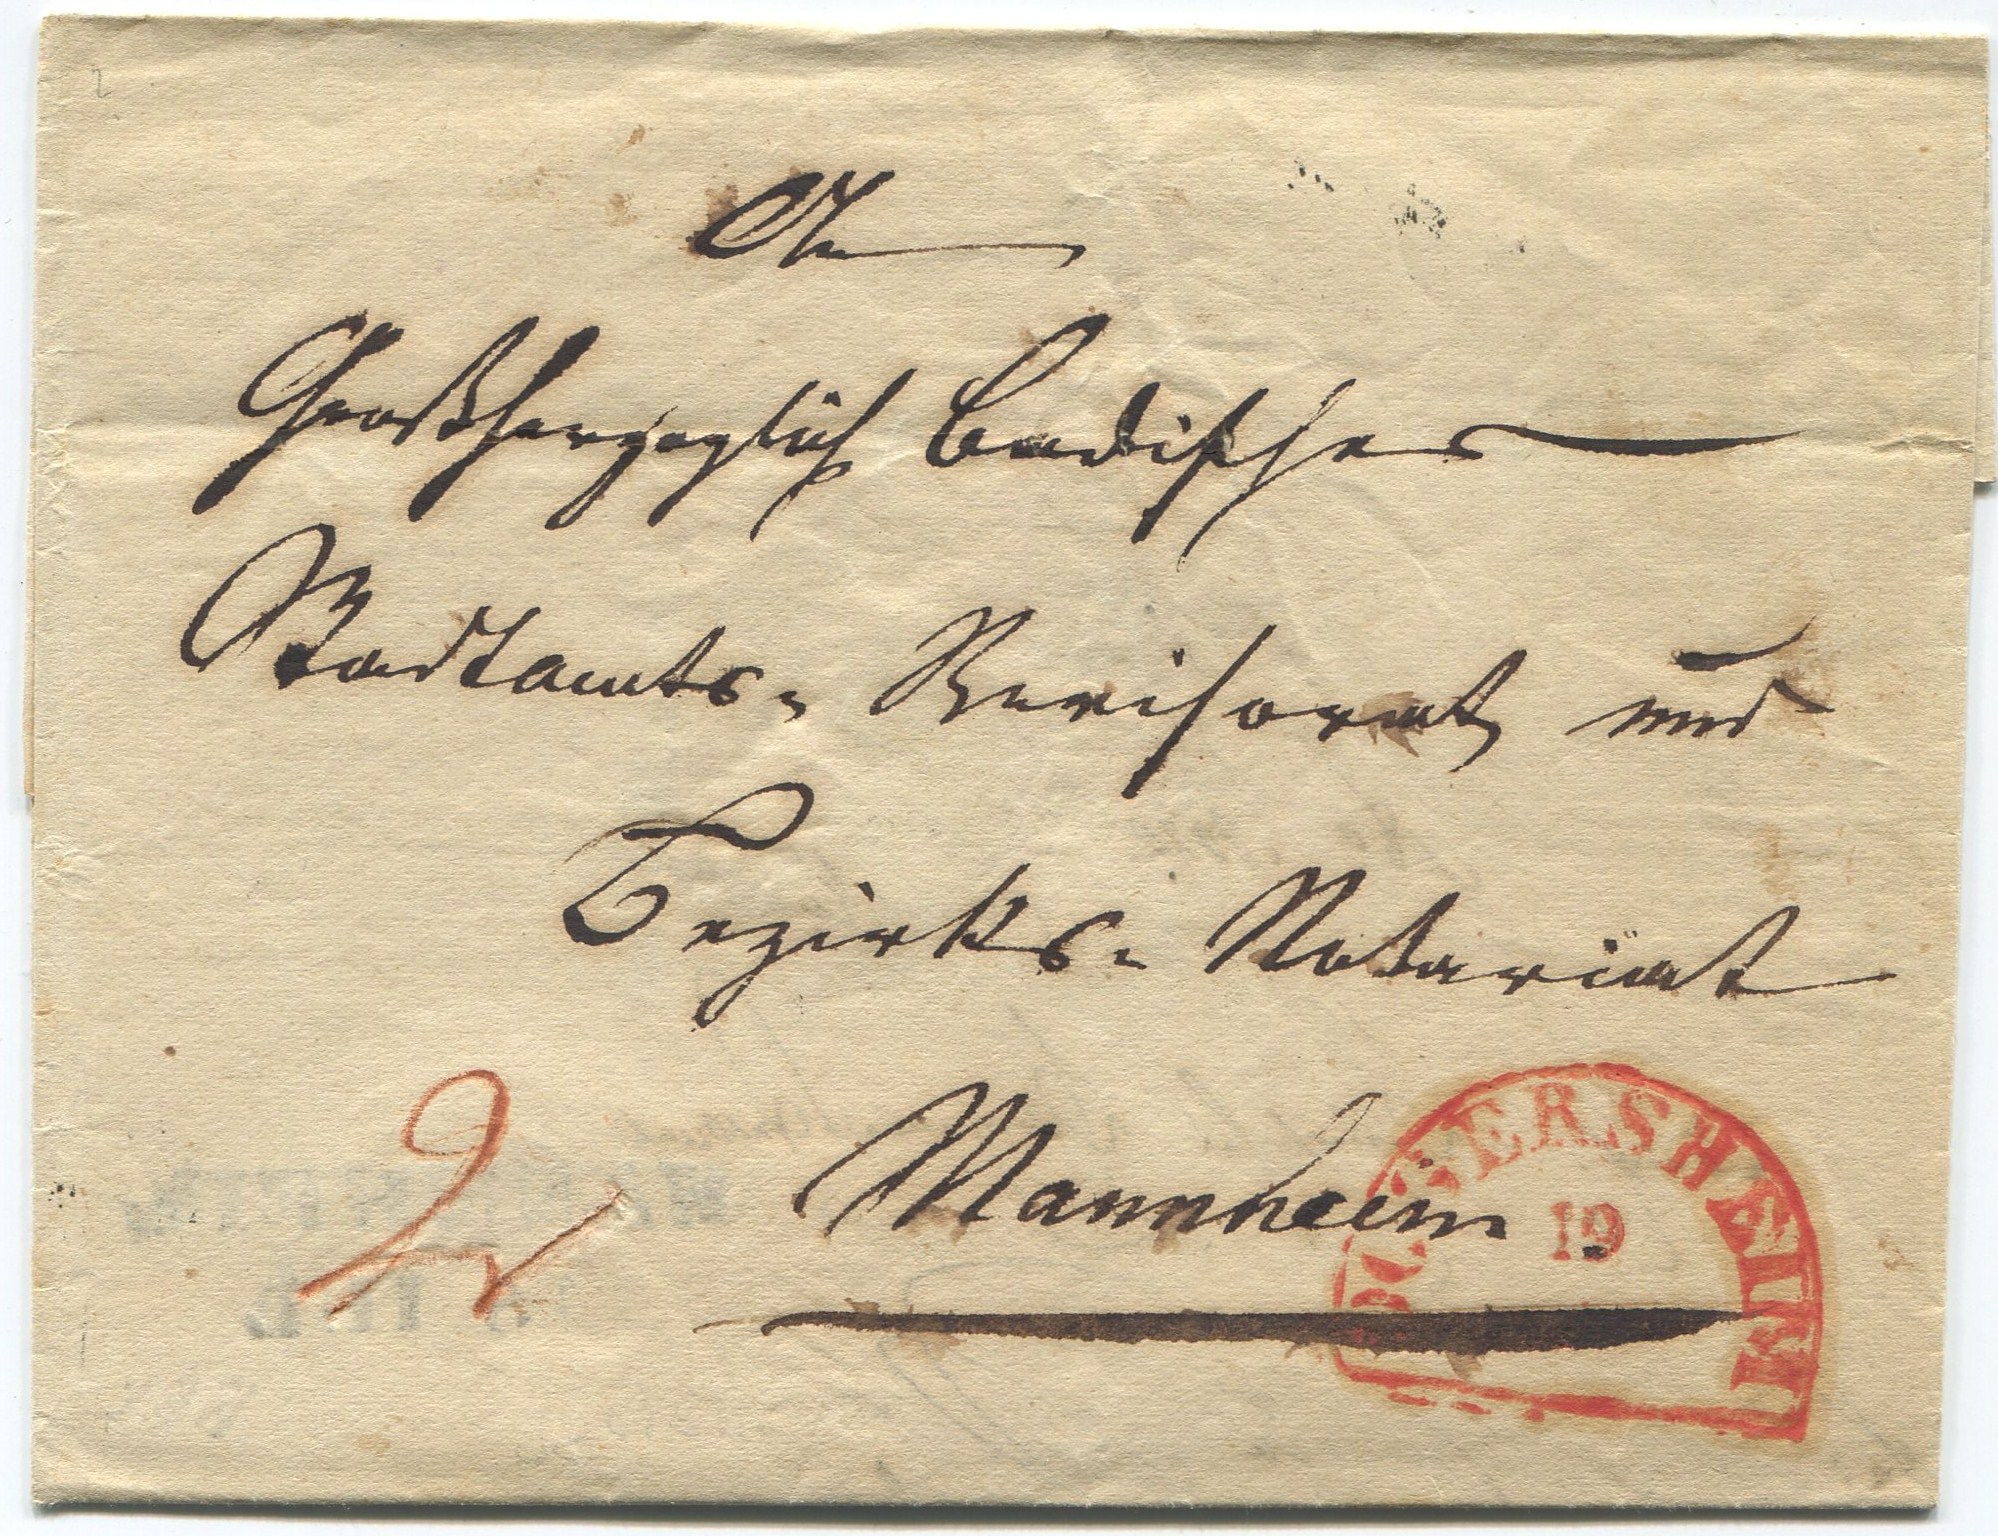 An
Großherzoglich Badisches
Stadtamts-Revisorat und
Bezirks-Notariat
Mannheim
2
19